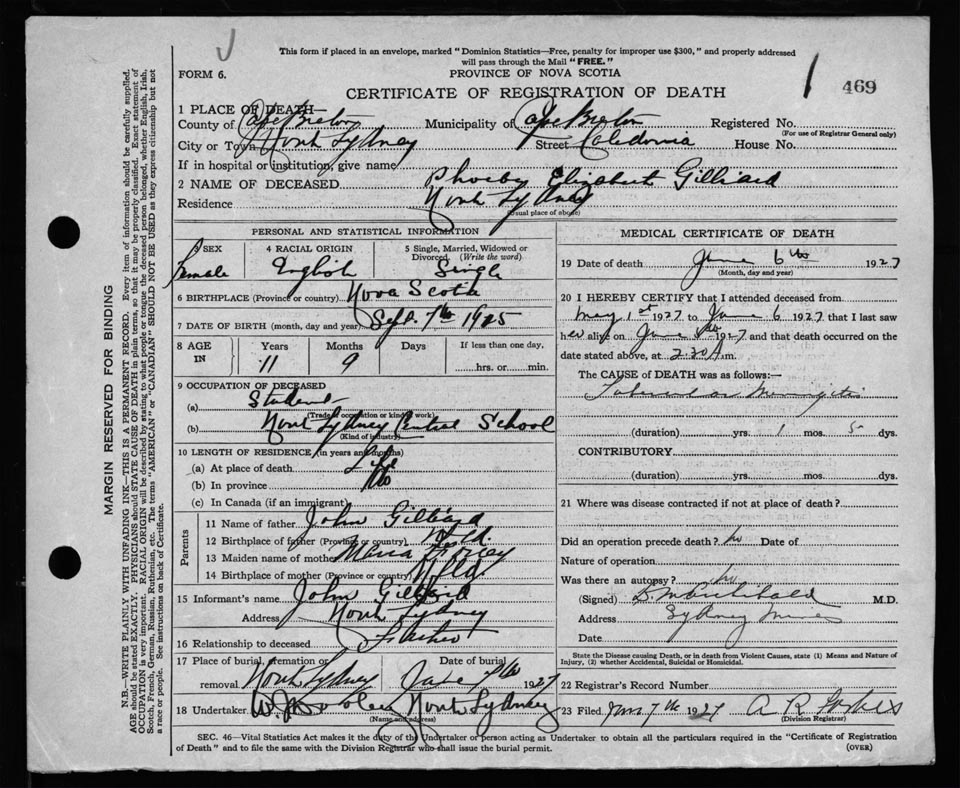 This form if placed in an envelope, marked "Dominion Statistics—Free, penalty for improper use $300," and properly addressed
will pass through the Mail "FREE."
FORM 6. PROVINCE OF NOVA SCOTIA
CERTIFICATE OF REGISTRATION OF DEATH 469
1 PLACE OF DEATH—
County of Cape Breton Municipality of Cape Breton Registered No.
(For use of Registrar General only)
City or Town North Sydney Street Caledonia House No.
If in hospital or institution, give name
2 NAME OF DECEASED Phoeby Elizabeth Gilliard
Residence North Sydney
(Usual place of abode)
PERSONAL AND STATISTICAL INFORMATION
3 SEX 4 RACIAL ORIGIN 5 Single, Married, Widowed or
Divorced (Write the word)
Female English Single
6 BIRTHPLACE (Province or country) Nova Scotia
7 DATE OF BIRTH (month, day and year) Sept. 7th 1915
8 AGE IN Years Months Days If less than one day,
11 9 hrs. or min.
9 OCCUPATION OF DECEASED
(a) Student
(Trade, occupation or kind of work)
(b) North Sydney Central School
(Kind of industry)
10 LENGTH OF RESIDENCE (in years and months)
(a) At place of death Life
(b) In province
(c) In Canada (if an immigrant)
Parents
11 Name of father John Gilliard
12 Birthplace of father (Province or country) Nfld.
13 Maiden name of mother Maria
14 Birthplace of mother (Province or country) Nfld
15 Informant's name John Gilliard
Address North Sydney
16 Relationship to deceased Father
17 Place of burial, cremation or Date of burial
removal North Sydney June 7th 1927
18 Undertaker North Sydney
(Name and address)
MEDICAL CERTIFICATE OF DEATH
19 Date of death June 6th 1927
(Month, day and year)
20 I HEREBY CERTIFY that I attended deceased from
May 1st 1927 to June 6 1927 that I last saw
her alive on June 1927 and that death occurred on the
date stated above, at 2.30 A.m.
The CAUSE of DEATH was as follows:—
Tubercular Meningitis
(duration) yrs. 1 mos. 5 dys.
CONTRIBUTORY
(duration) yrs. mos. dys.
21 Where was disease contracted if not at place of death?
Did an operation precede death? No Date of
Nature of operation
Was there an autopsy? No
(Signed) Archibald M.D.
Address Sydney Mines
Date
State the Disease causing Death, or in death from Violent Causes, state (1) Means and Nature of
Injury, (2) whether Accidental, Suicidal or Homicidal.
22 Registrar's Record Number
23 Filed June 7th 1927 A R Forbes
(Division Registrar)
SEC. 46—Vital Statistics Act makes it the duty of the Undertaker or person acting as Undertaker to obtain all the particulars required in the "Certificate of Registration
of Death" and to file the same with the Division Registrar who shall issue the burial permit. (OVER)
MARGIN RESERVED FOR BINDING
N.B.—WRITE PLAINLY WITH UNFADING INK—THIS IS A PERMANENT RECORD. Every item of information should be carefully supplied.
AGE should be stated EXACTLY. PHYSICIANS should STATE CAUSE OF DEATH in plain terms, so that it may be properly classified. Exact statement of
OCCUPATION is very important. RACIAL ORIGIN will be described by stating to what people or tongue the deceased person belonged, whether English, Irish,
Scotch, French, German, Russian, Ruthenian, etc. The terms "AMERICAN" or "CANADIAN" SHOULD NOT BE USED as they express citizenship but not
a race or people. See instructions on back of Certificate.